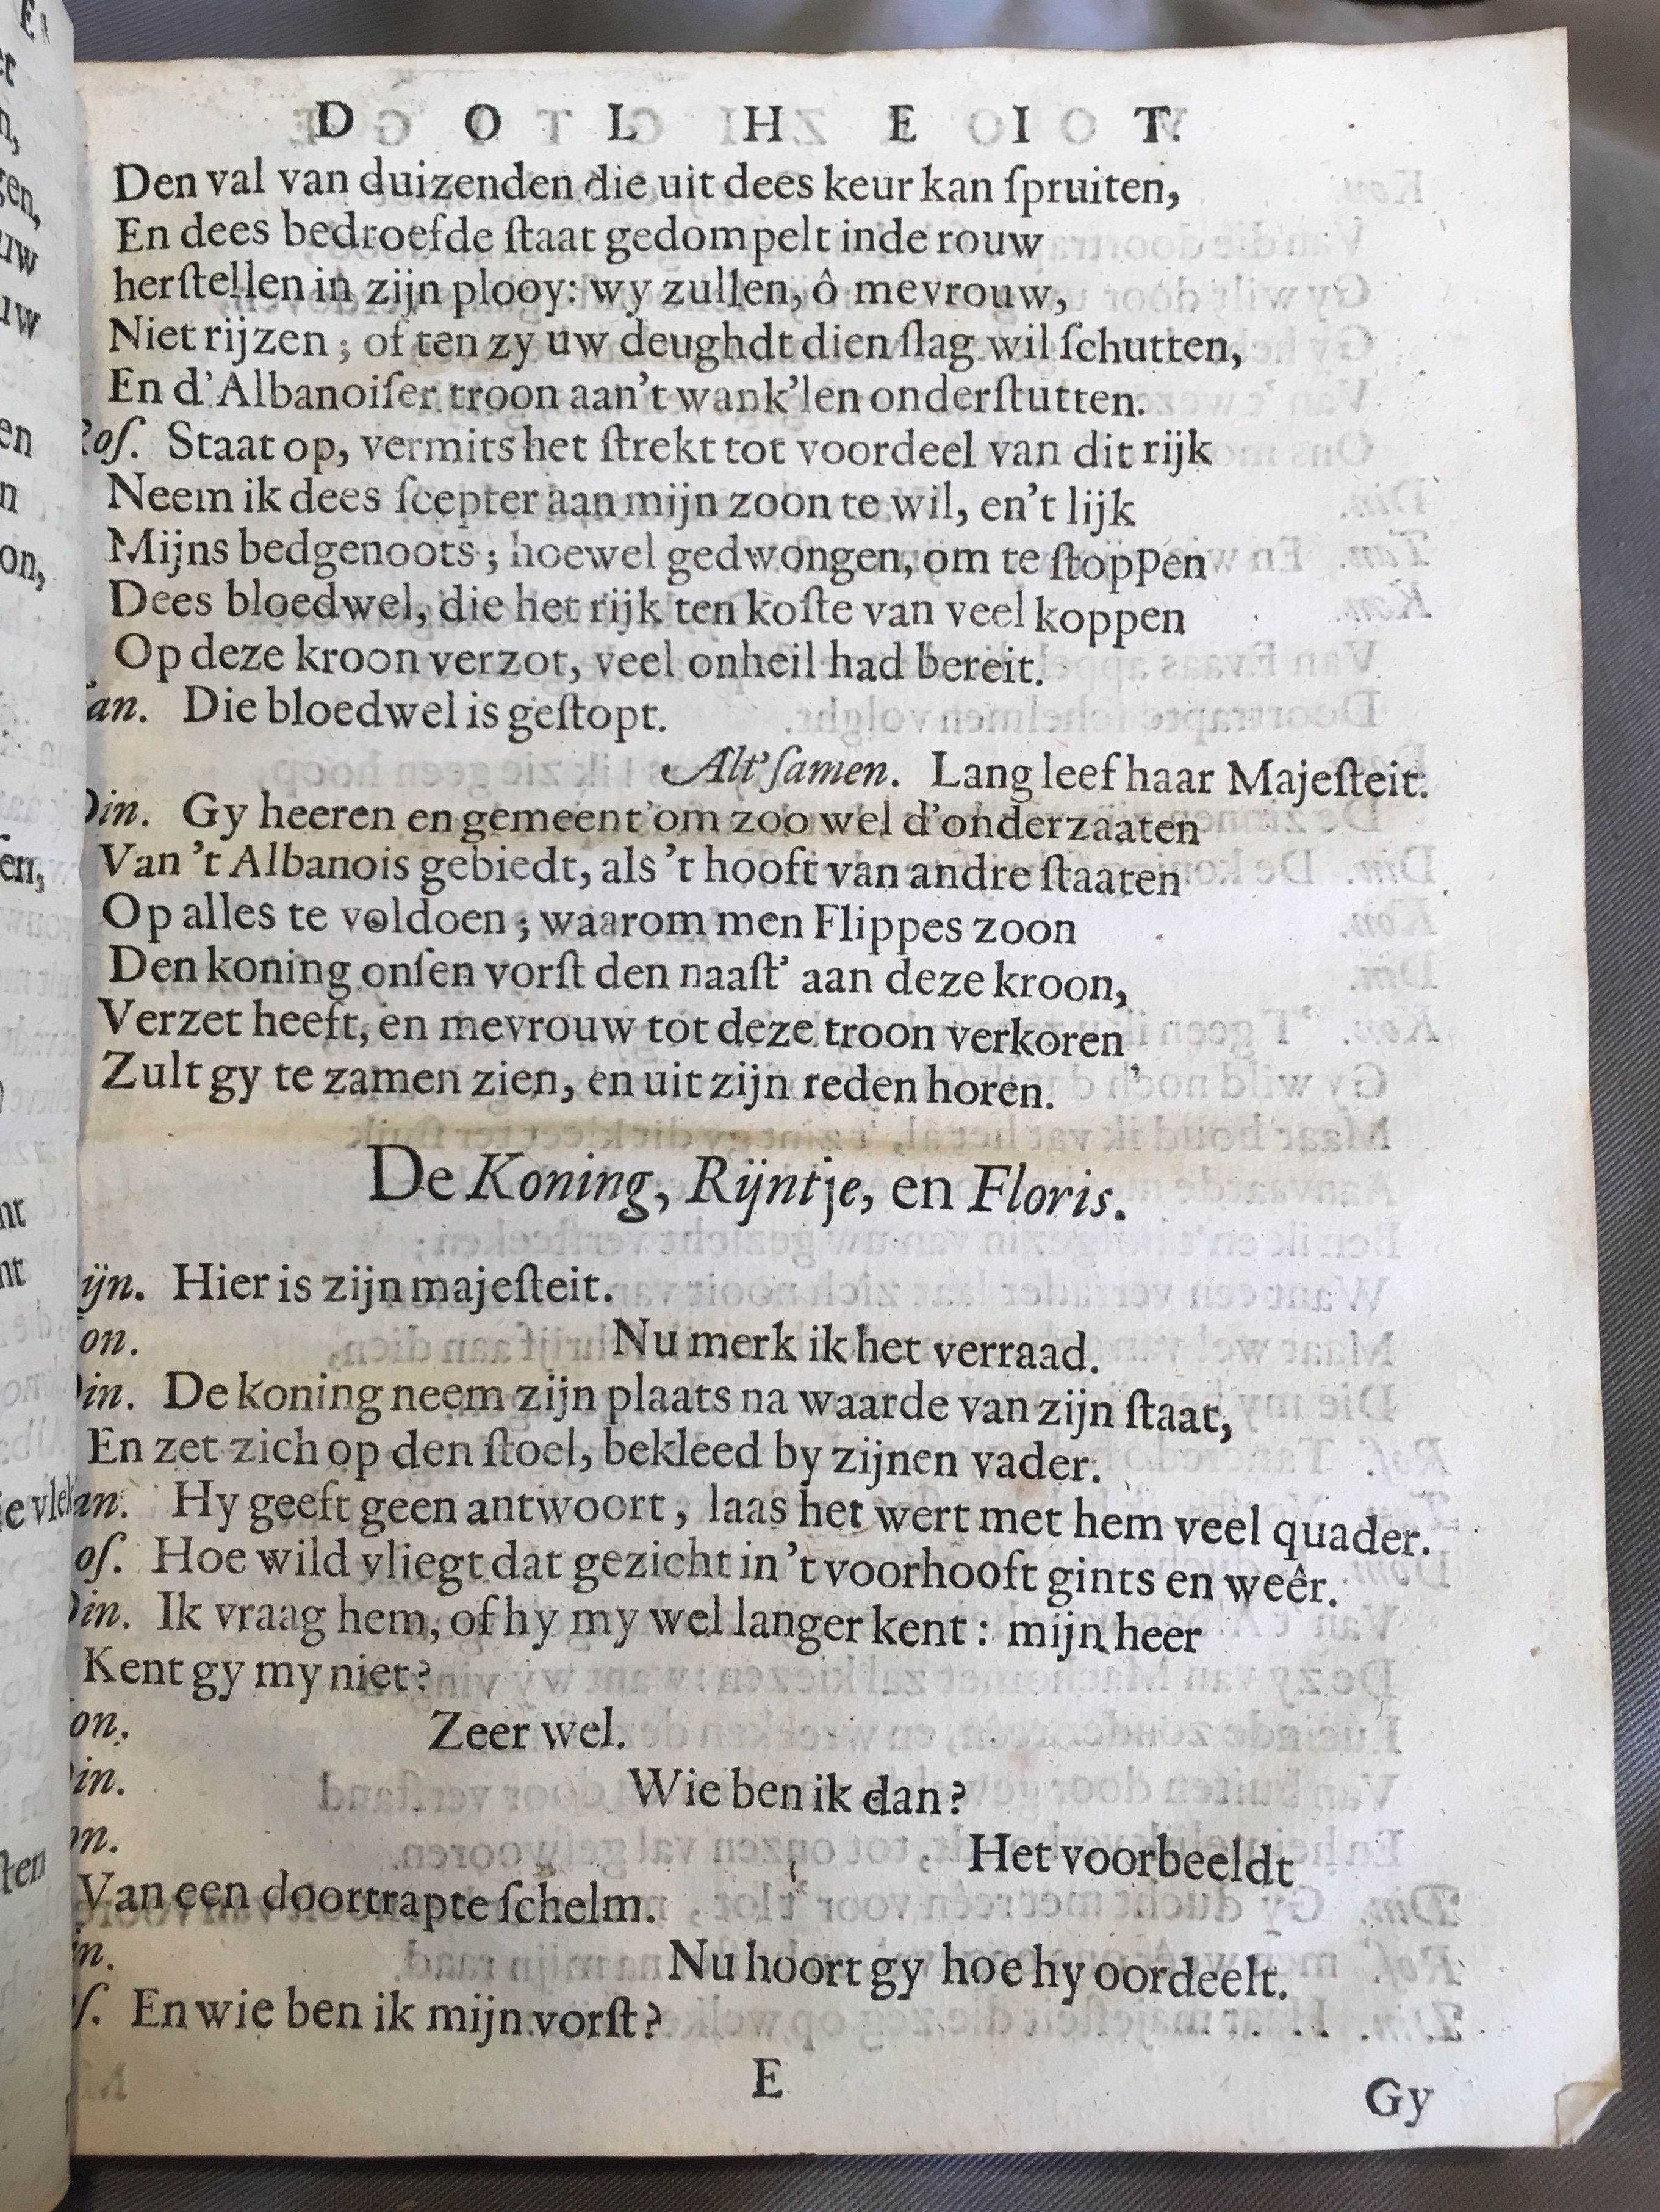 D O L H E I T.
Den val van duizenden die uit dees keur kan ſpruiten,
En dees bedroefde ſtaat gedompelt inde rouw
herſtellen in zijn plooy: wy zullen, ô mevrouw,
Niet rijzen; of ten zy uw deughdt dien ſlag wil ſchutten,
En d'Albanoiſer troon aan't wank'len onderſtutten.
Roſ. Staat op, vermits het ſtrekt tot voordeel van dit rijk
Neem ik dees ſcepter aan mijn zoon te wil, en't lijk
Mijns bedgenoots; hoewel gedwongen, om te ſtoppen
Dees bloedwel, die het rijk ten koſte van veel koppen
Op deze kroon verzot, veel onheil had bereit.
an. Die bloedwel is geſtopt.
Alt'ſamen. Lang leef haar Majeſteit.
Din. Gy heeren en gemeent' om zoo wel d'onderzaaten
Van 't Albanois gebiedt, als 't hooft van andre ſtaaten
Op alles te voldoen; waarom men Flippes zoon
Den koning onſen vorſt den naaſt' aan deze kroon,
Verzet heeft, en mevrouw tot deze troon verkoren,
Zult gy te zamen zien, en uit zijn reden horen.
De Koning, Rijntje, en Floris.
ijn. Hier is zijn majeſteit.
on. Nu merk ik het verraad.
Din. De koning neem zijn plaats na waarde van zijn ſtaat,
En zet zich op den ſtoel, bekleed by zijnen vader.
an. Hy geeft geen antwoort, laas het wert met hem veel quader.
oſ. Hoe wild vliegt dat gezicht in 't voorhooft gints en weêr.
Din. Ik vraag hem, of hy my wel langer kent: mijn heer
Kent gy my niet?
on. Zeer wel.
in. Wie ben ik dan?
on. Het voorbeeldt
Van een doortrapte ſchelm.
in. Nu hoort gy hoe hy oordeelt.
ſ. En wie ben ik mijn vorſt?
E
Gy